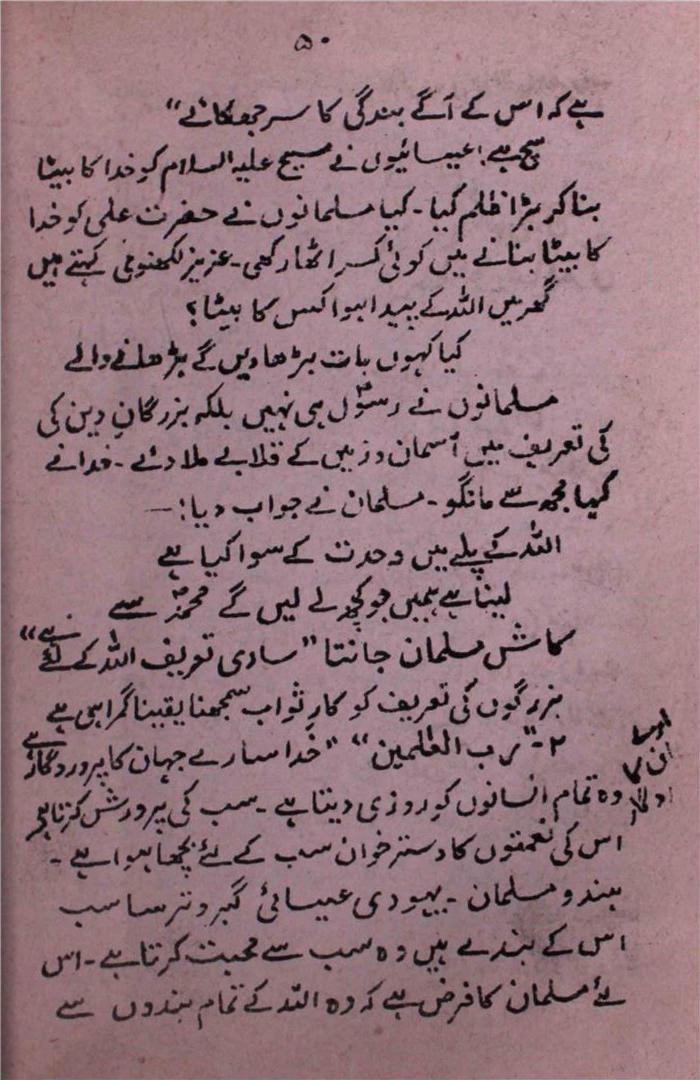 ۵۰
ہے کہ اس کے آگے بندگی کا سر جھکائے"
سچ ہے! عیسائیوں نے مسیح علیہ السلام کو خدا کا بیٹا
بنا کر بڑا ظلم کیا۔ کیا مسلمانوں نے حضرت علی کو خدا
کا بیٹا بنانے میں کوئی کسر اٹھا رکھی۔ عزیز لکھنوی کہتے ہیں
گھر میں اللہ کے پیدا ہوا کس کا بیٹا؟
کیا کہوں بات بڑھا دیں گے بڑھانے والے
مسلمانوں نے رسولؐ ہی نہیں بلکہ بزرگانِ دین کی
کی تعریف میں آسمان و زمیں کے قلابے ملا دئے۔ خدا نے
کہا مجھ سے مانگو۔ مسلمان نے جواب دیا:—
اللہ کے پلے میں وحدت کے سوا کیا ہے
لینا ہے ہمیں جو کچھ لے لیں گے محمدؐ سے
کاش مسلمان جانتا "ساری تعریف اللہ کے لئے ہے"
بزرگوں کی تعریف کو کارِ ثواب سمجھنا یقینا گمراہی ہے
۲۔ "رب العٰلمین" "خدا سارے جہان کا پروردگار ہے
وہ تمام انسانوں کو روزی دیتا ہے۔ سب کی پرورش کرتا ہے
اس کی نعمتوں کا دسترخوان سب کے لئے بچھا ہوا ہے۔
ہندو مسلمان۔ یہودی عیسائی گبر و ترسا سب
اس کے بندے ہیں وہ سب سے محبت کرتا ہے۔ اس
لئے مسلمان کا فرض ہے کہ وہ اللہ کے تمام بندوں سے